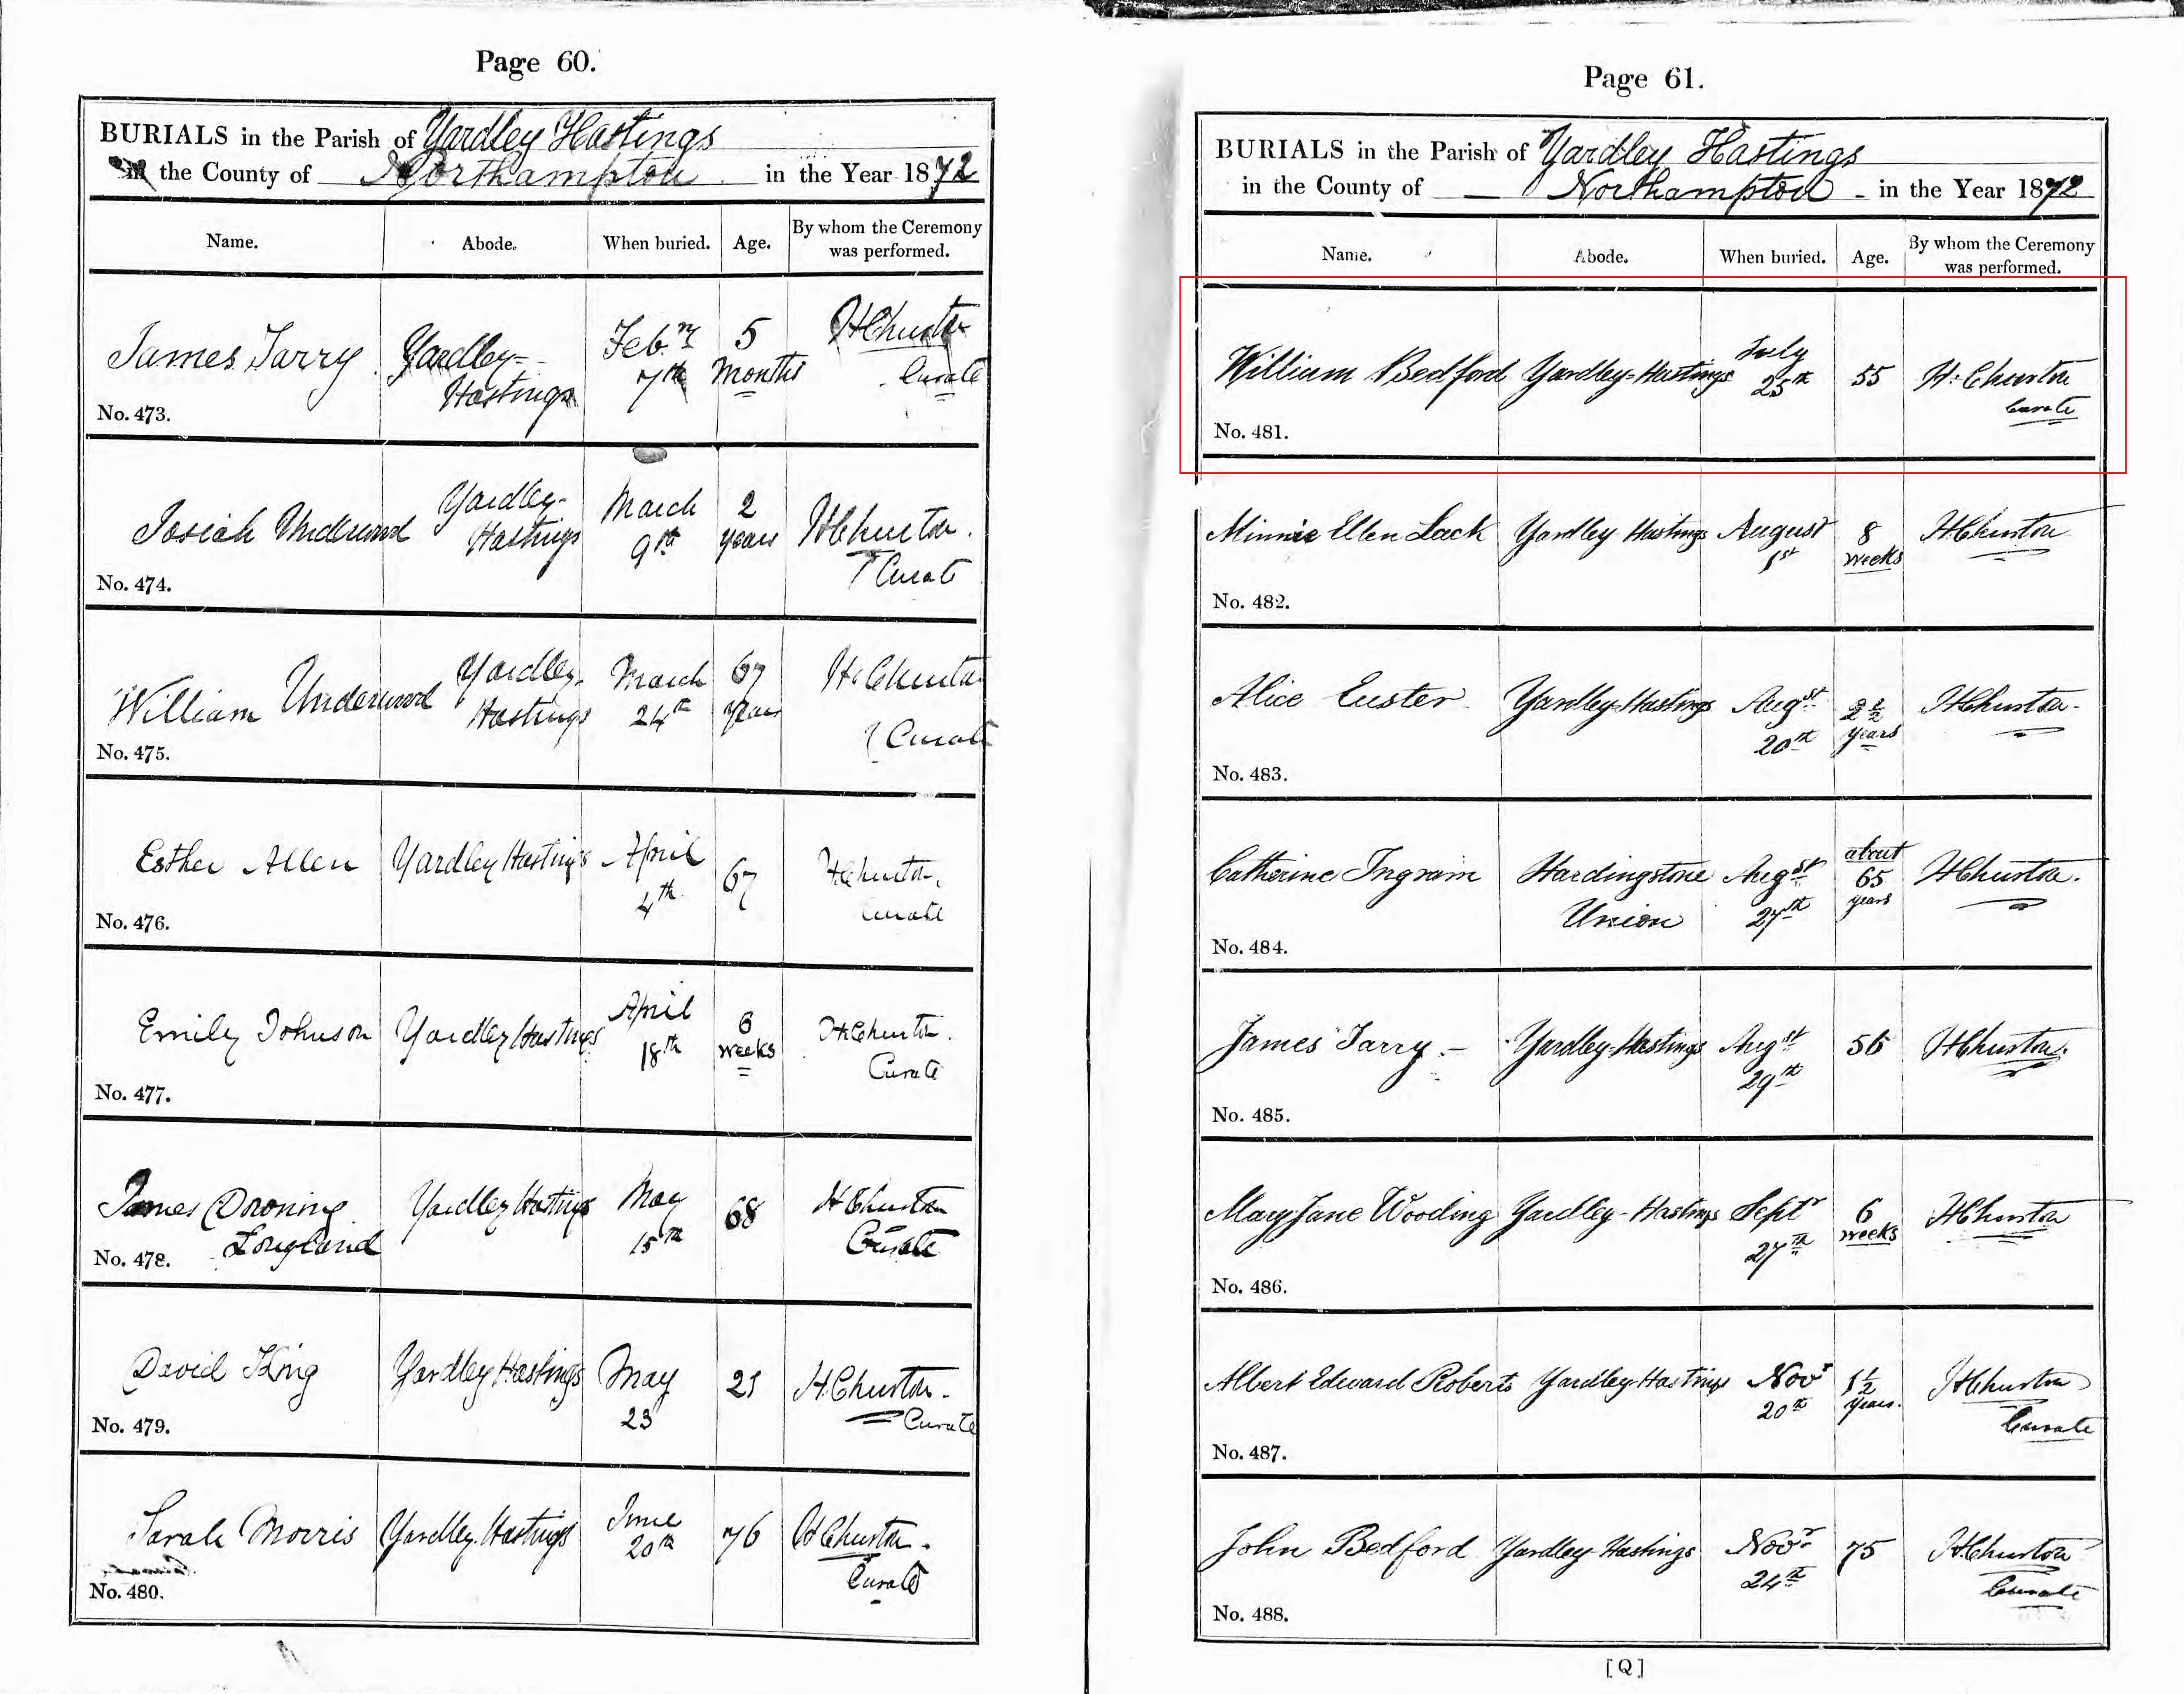 Page 60.
BURIALS in the Parish of Yardley Hastings
in the County of Northampton in the Year 1872
Name. Abode. When buried. Age. By whom the Ceremony was performed.
James Tarry Yardley- Hastings Feb.ry 7th 5 Months H Churton Curate
No. 473.
Josiah Underwood Yardley- Hastings March 9th 2 years H Churton. Curate
No. 474.
William Underwood Yardley- Hastings March 24th 67 years H. Churton Curate
No. 475.
Esther Allen Yardley Hastings April 4th 67 H Churton, Curate
No. 476.
Emily Johnson Yardley Hastings April 18th 6 weeks H Churton. Curate
No. 477.
James Longland Yardley Hastings May 15th 68 H Churton Curate
No. 478.
David King Yardley Hastings May 23 21 H. Churton. Curate
No. 479.
Sarah Morris Yardley Hastings June 20th 76 H Churton. Curate
No. 480.
Page 61.
BURIALS in the Parish of Yardley Hastings
in the County of Northampton in the Year 1872
Name. Abode. When buried. Age. By whom the Ceremony was performed.
William Bedford Yardley-Hastings July 25th 55 H. Churton Curate
No. 481.
Minnie Ellen Lack Yardley Hastings August 1st 8 weeks H Churton
No. 482.
Alice Yardley-Hastings Augst 20th 2½ years H Churton-
No. 483.
Catherine Ingram Hardingstone Union Augst 27th about 65 years H Churton.
No. 484.
James Tarry.- Yardley-Hastings Augst 29th 56 H Churton.
No. 485.
Mary Jane Wooding Yardley-Hastings Septr 27th 6 weeks H Churton
No. 486.
Albert Edward Roberts Yardley-Hastings Novr 20th 1½ years. H Churton Curate
No. 487.
John Bedford Yardley-Hastings Novr 24th 75 H Churton Curate
No. 488.
[Q]